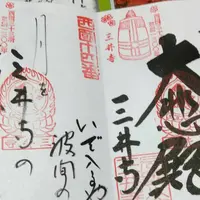 三井寺
大悲殿
三井寺
西国十四番
いで入るや
波間の
月を
三井寺の